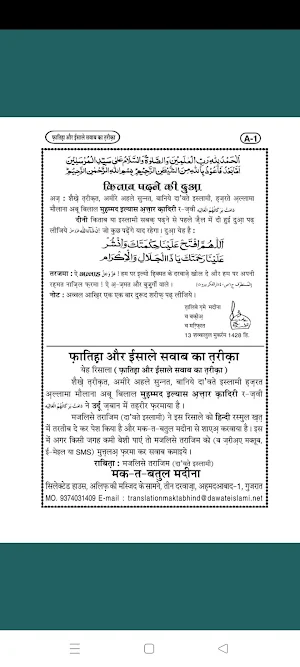 फ़ातिहा और ईसाले सवाब का त़रीक़ा
A-1
اَلْحَمْدُ لِلّٰہِ رَبِّ الْعٰلَمِیْنَ وَالصَّلٰوۃُ وَالسَّلَامُ عَلٰی سَیِّدِ الْمُرْسَلِیْنَ
اَمَّا بَعْدُ فَاَعُوْذُ بِاللّٰہِ مِنَ الشَّیْطٰنِ الرَّجِیْمِ بِسْمِ اللّٰہِ الرَّحْمٰنِ الرَّحِیْمِ
किताब पढ़ने की दुआ़
अज़ : शैख़े त़रीक़त, अमीरे अहले सुन्नत, बानिये दा'वते इस्लामी, ह़ज़रते अ़ल्लामा
मौलाना अबू बिलाल मुह़म्मद इल्यास अ़त़्त़ार क़ादिरी र-ज़वी
दीनी किताब या इस्लामी सबक़ पढ़ने से पहले ज़ैल में दी हुई दुआ़ पढ़
लीजिये जो कुछ पढ़ेंगे याद रहेगा । दुआ़ येह है :
اَللّٰھُمَّ افْتَحْ عَلَیْنَا حِکْمَتَکَ وَانْشُرْ
عَلَیْنَا رَحْمَتَکَ یَا ذَا الْجَلَالِ وَالْاِکْرَام
तरजमा : ऐ अल्लाह ! हम पर इ़ल्मो ह़िक्मत के दरवाज़े खोल दे और हम पर अपनी
रह़मत नाज़िल फ़रमा ! ऐ अ़-ज़मत और बुज़ुर्गी वाले ।
नोट : अव्वल आख़िर एक एक बार दुरूद शरीफ़ पढ़ लीजिये ।
त़ालिबे ग़मे मदीना
व बक़ीअ़
व मग़्फ़िरत
13 शव्वालुल मुकर्रम 1428 हि.
फ़ातिह़ा और ईसाले सवाब का त़रीक़ा
येह रिसाला ( फ़ातिह़ा और ईसाले सवाब का त़रीक़ा )
शैख़े त़रीक़त, अमीरे अहले सुन्नत, बानिये दा'वते इस्लामी ह़ज़रत
अ़ल्लामा मौलाना अबू बिलाल मुह़म्मद इल्यास अ़त़्त़ार क़ादिरी र-ज़वी
ने उर्दू ज़बान में तह़रीर फ़रमाया है ।
मजलिसे तराजिम (दा'वते इस्लामी) ने इस रिसाले को हिन्दी रस्मुल ख़त़
में तरतीब दे कर पेश किया है और मक-त-बतुल मदीना से शाएअ़ करवाया है । इस
में अगर किसी जगह कमी बेशी पाएं तो मजलिसे तराजिम को (ब ज़रीअ़ए मक्तूब,
ई-मेइल या SMS) मुत़्त़लअ़ फ़रमा कर सवाब कमाइये ।
राबिता : मजलिसे तराजिम (दा'वते इस्लामी)
मक-त-बतुल मदीना
सिलेक्टेड हाउस, अलिफ़ की मस्जिद के सामने, तीन दरवाज़ा, अह़मदआबाद-1, गुजरात
MO. 9374031409 E-mail : translationmaktabhind@dawateislami.net